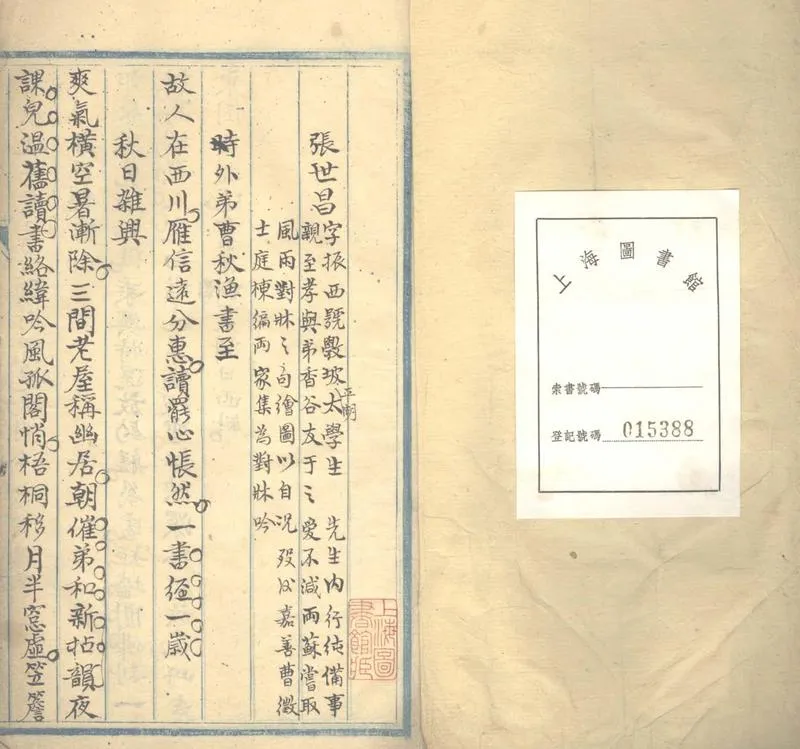 上海圖書館
索書號碼
登記號碼 015388
上海圖書館藏
張世昌
字振西號穀坡平湖太學生 先生內行純備事
親至孝與弟香谷友于之愛不減兩蘇嘗取
風雨對牀之句繪圖以自況 歿后嘉善曹徵
士庭棟編兩家集為對牀吟
時外弟曹秋漁書至
故人在西川雁信遠分惠讀罷心悵然一書經一歲
秋日雜興
爽氣橫空暑漸除三間老屋稱幽居朝催弟和新拈韻夜
課兒溫舊讀書絡緯吟風孤閣悄梧桐移月半窓虛笠簷